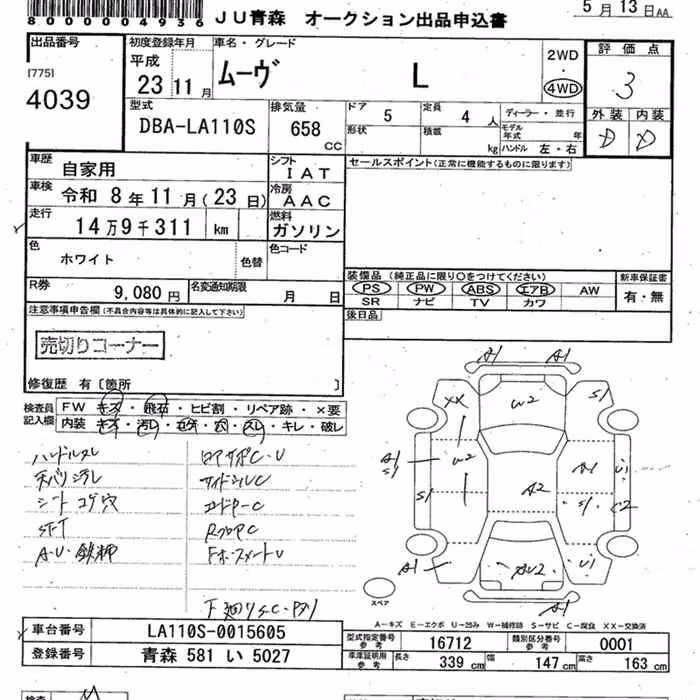 800004936
JU青森 オークション出品申込書
5月13日AA
出品番号
[775]
4039
初度登録年月
平成
23 11月
車名・グレード
ムーヴ L
2WD
・
4WD
評価点
3
外装 内装
D D
型式
DBA-LA110S
排気量
658
CC
ドア 5
定員 4人
形状
積載 kg
ディーラー・並行
モデル年式 年
ハンドル 左・右
車歴
自家用
シフト
IAT
セールスポイント(正常に機能するものに限ります)
車検
令和 8年11月(23日)
冷房
AAC
走行
14万9千311 km
燃料
ガソリン
色
ホワイト
色替
色コード
R券
9,080円
名変通知期限
月 日
装備品(純正品に限り○をつけてください)
PS PW ABS エアB AW
SR ナビ TV カワ
新車保証書
有・無
後日品
注意事項申告欄(不具合内容等は具体的に記入して下さい)
売切りコーナー
修復歴 有[箇所 ]
検査員記入欄
FW キズ・飛石・ヒビ割・リペア跡・×要
内装 キズ・汚レ・コゲ・穴・スレ・キレ・破レ
ハンドルスレ
天バリ汚レ
シート コゲ穴
ST-T
A・U・鉄粉
ロアサポC・U
サイドシルC
エンドマーC
RフロアC
下廻りS・C・
A1 A1
XX W2 S1
A1 S1 W2 A1 U1
S1 A2 S1 C2
A1 AW2 U1
A1
スペア
A-キズ E-エクボ U-凹み W-補修跡 S-サビ C-腐食 XX-交換済
車台番号
LA110S-0015605
登録番号
青森 581 い 5027
型式指定番号 参考
16712
類別区分番号 参考
0001
車庫証明用 参考
長さ 339cm 幅 147cm 高さ 163cm
検査